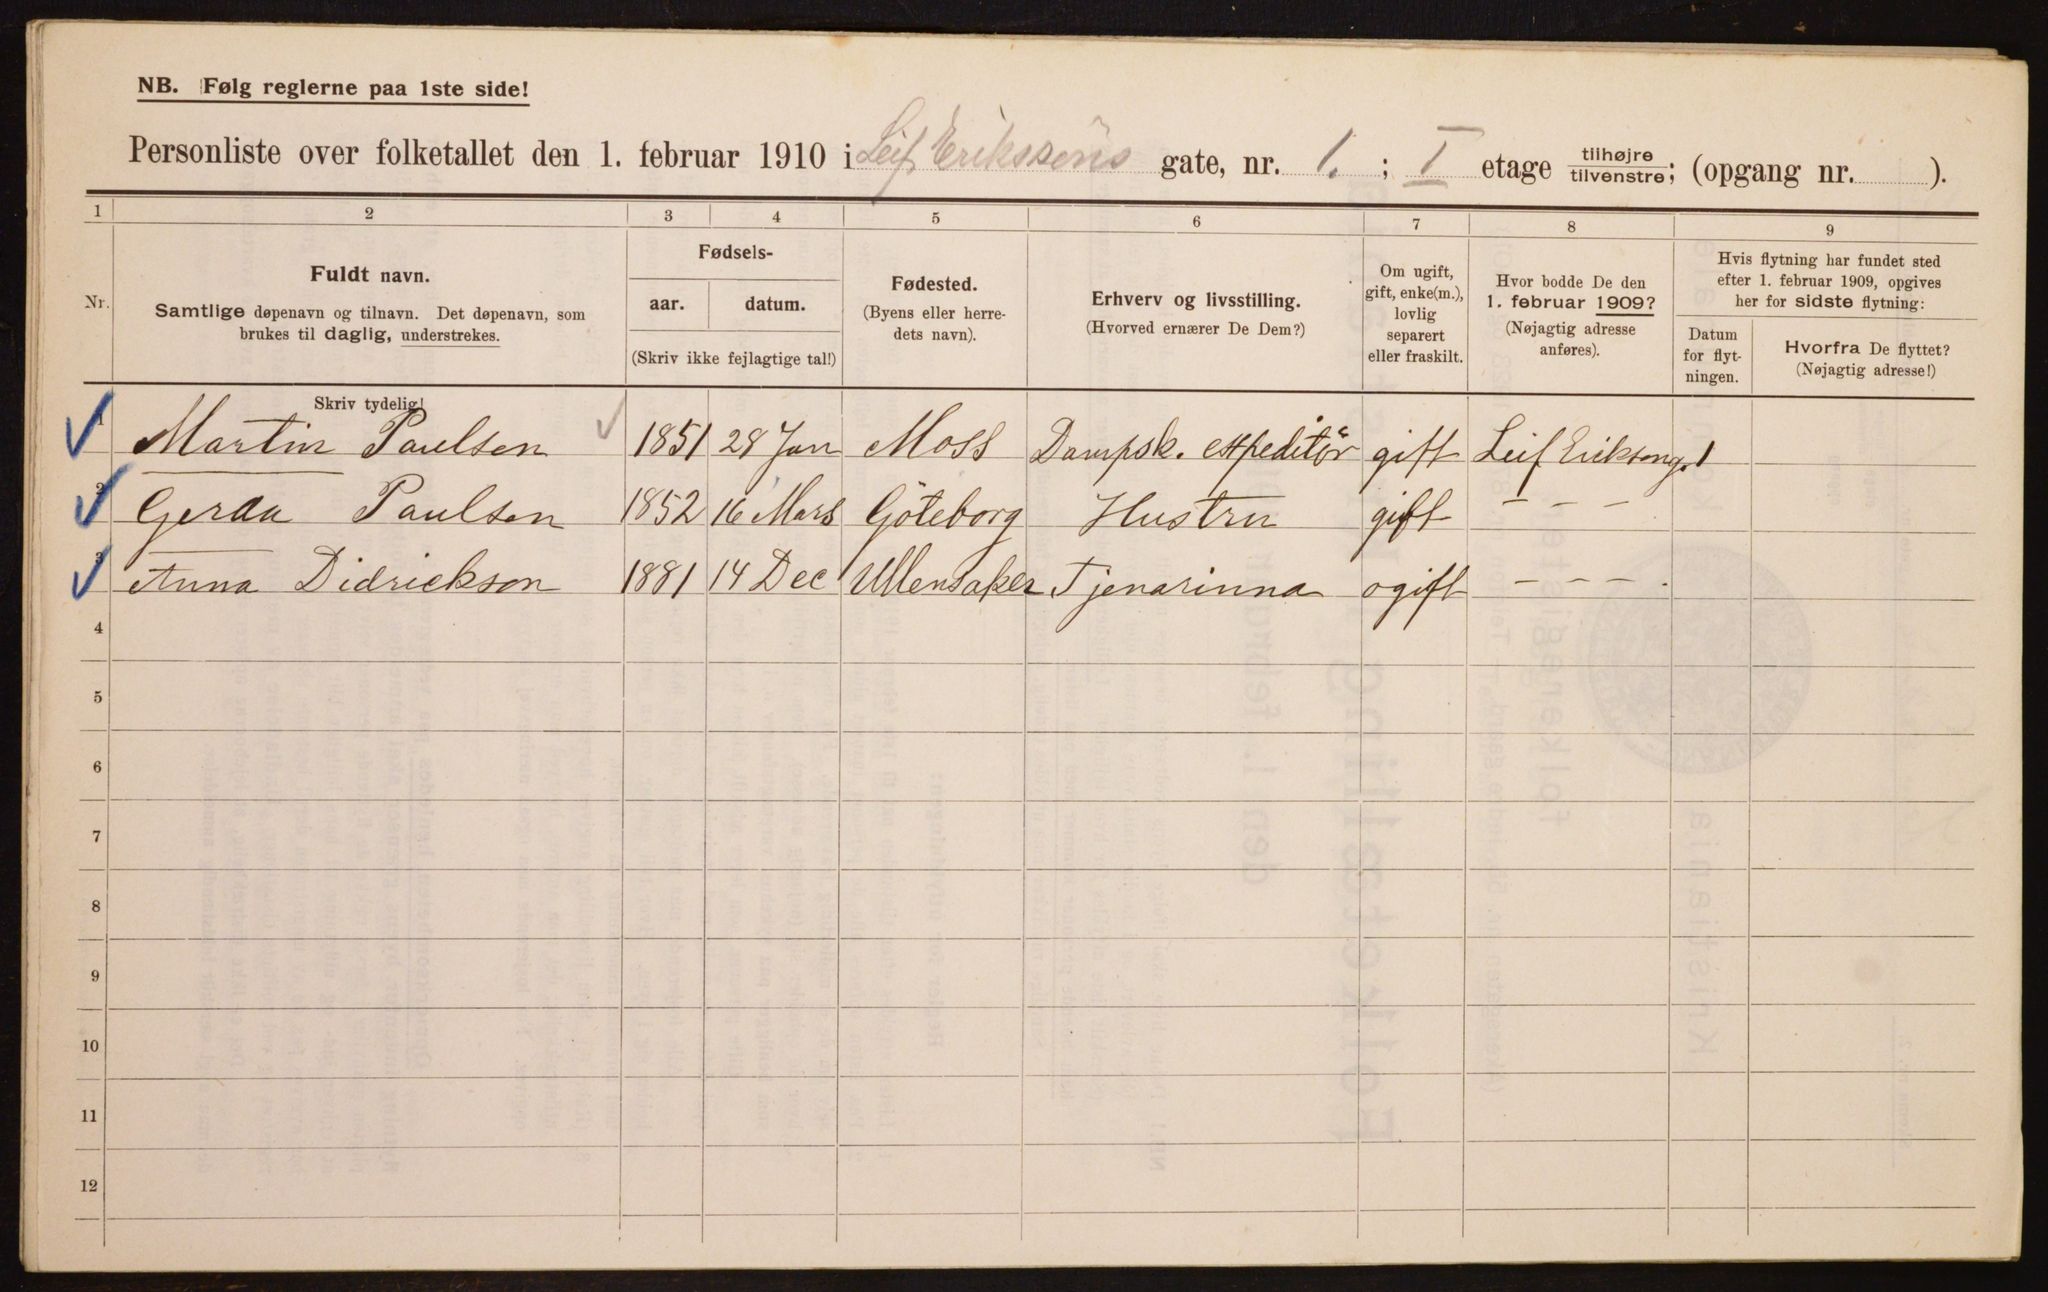 NB. Følg reglerne paa 1ste side!
Personliste over folketallet den 1. februar 1910 i Leif Erikssöns gate, nr. 1. ; I etage tilhøjre tilvenstre; (opgang nr. ).
1 2 3 4 5 6 7 8 9
Nr.
Fuldt navn.
Samtlige døpenavn og tilnavn. Det døpenavn, som
brukes til daglig, understrekes.
Fødsels-
aar. datum.
(Skriv ikke fejlagtige tal!)
Fødested.
(Byens eller herre-
dets navn).
Erhverv og livsstilling.
(Hvorved ernærer De Dem?)
Om ugift,
gift, enke(m.),
lovlig
separert
eller fraskilt.
Hvor bodde De den
1. februar 1909?
(Nøjagtig adresse
anføres).
Hvis flytning har fundet sted
efter 1. februar 1909, opgives
her for sidste flytning:
Datum
for flyt-
ningen.
Hvorfra De flyttet?
(Nøjagtig adresse!)
Skriv tydelig!
1 Martin Paulsen 1851 28 Jan Moss Dampsk. expeditör gift Leif Eriksong. 1
2 Gerda Paulsen 1852 16 Mars Göteborg Hustru gift – – –
3 Anna Didrickson 1881 14 Dec Ullensaker Tjenarinna ogift – – –
4
5
6
7
8
9
10
11
12